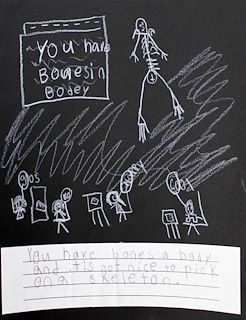 You have
Bonesin
Bodey
You have bones a body
and tis not nice to pick
on a skeleton.